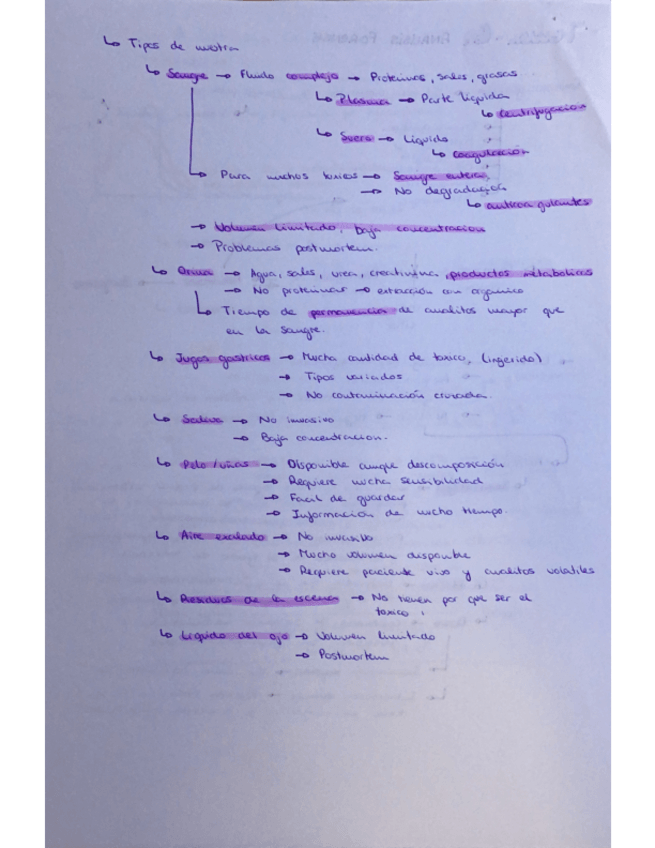 ↳ Tipos de mostra
↳ Sangre → Fluido complejo → Proteinas, sales, grasas
↳ Plasma → Parte liquida
↳ Centrifugacion
↳ Suero → Liquido
↳ Coagulación
↳ Para muchos toxicos → Sangre entera,
→ No degradación
↳ anticoagulantes
→ Volumen limitado, baja concentracion
→ Problemas postmortem.
↳ Orina → Agua, sales, urea, creatinina, productos metabolicos
→ No proteinas → extracción con organico
↳ Tiempo de permanencia de analitos mayor que
en la sangre.
↳ Jugos gastricos → Mucha cantidad de toxico, (ingerido)
→ Tipos variados
→ No contaminación cruzada.
↳ Saliva → No invasivo
→ Baja concentracion.
↳ Pelo/uñas → Disponible aunque descomposición
→ Requiere mucha sensibilidad
→ Facil de guardar
→ Información de mucho tiempo.
↳ Aire exalado → No invasibo
→ Mucho volumen disponible
→ Requiere paciente vivo y analitos volatiles
↳ Residuos de la escena → No tienen por que ser el
toxico
↳ Liquido del ojo → Volumen limitado
→ Postmortem